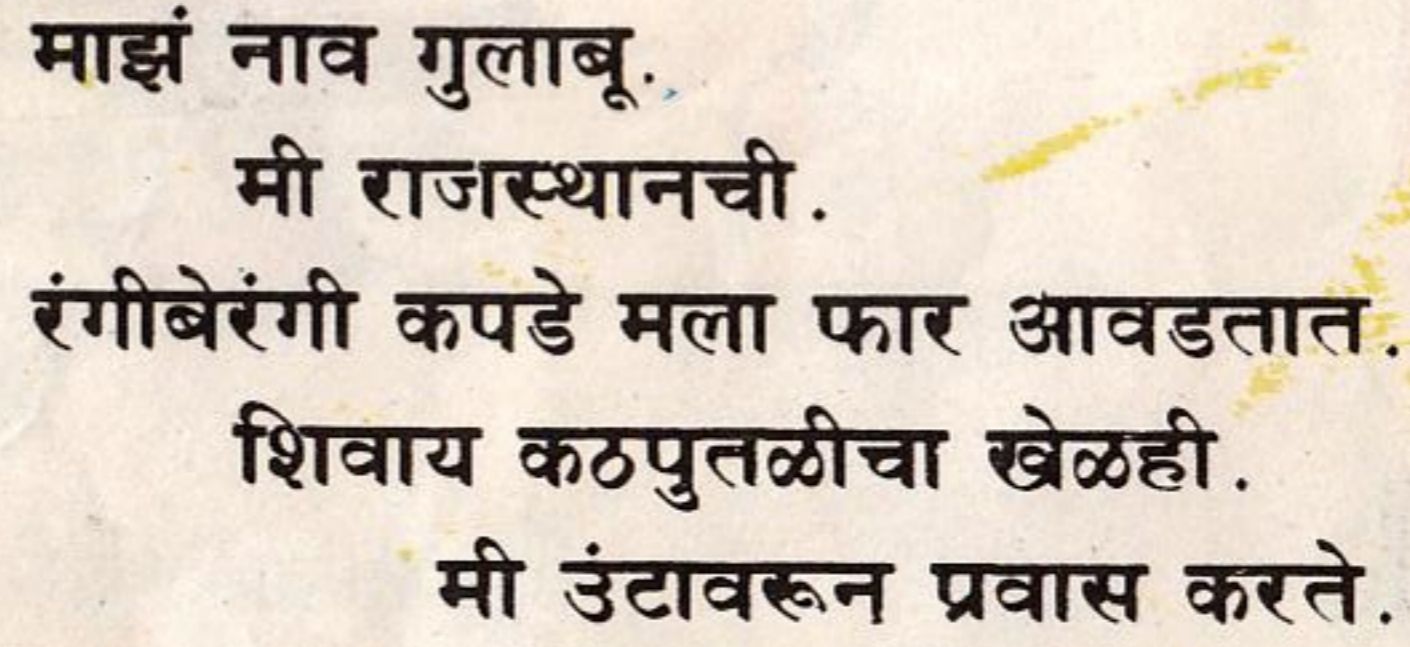 माझं नाव गुलाबू.
मी राजस्थानची.
रंगीबेरंगी कपडे मला फार आवडतात.
शिवाय कठपुतळीचा खेळही.
मी उंटावरून प्रवास करते.